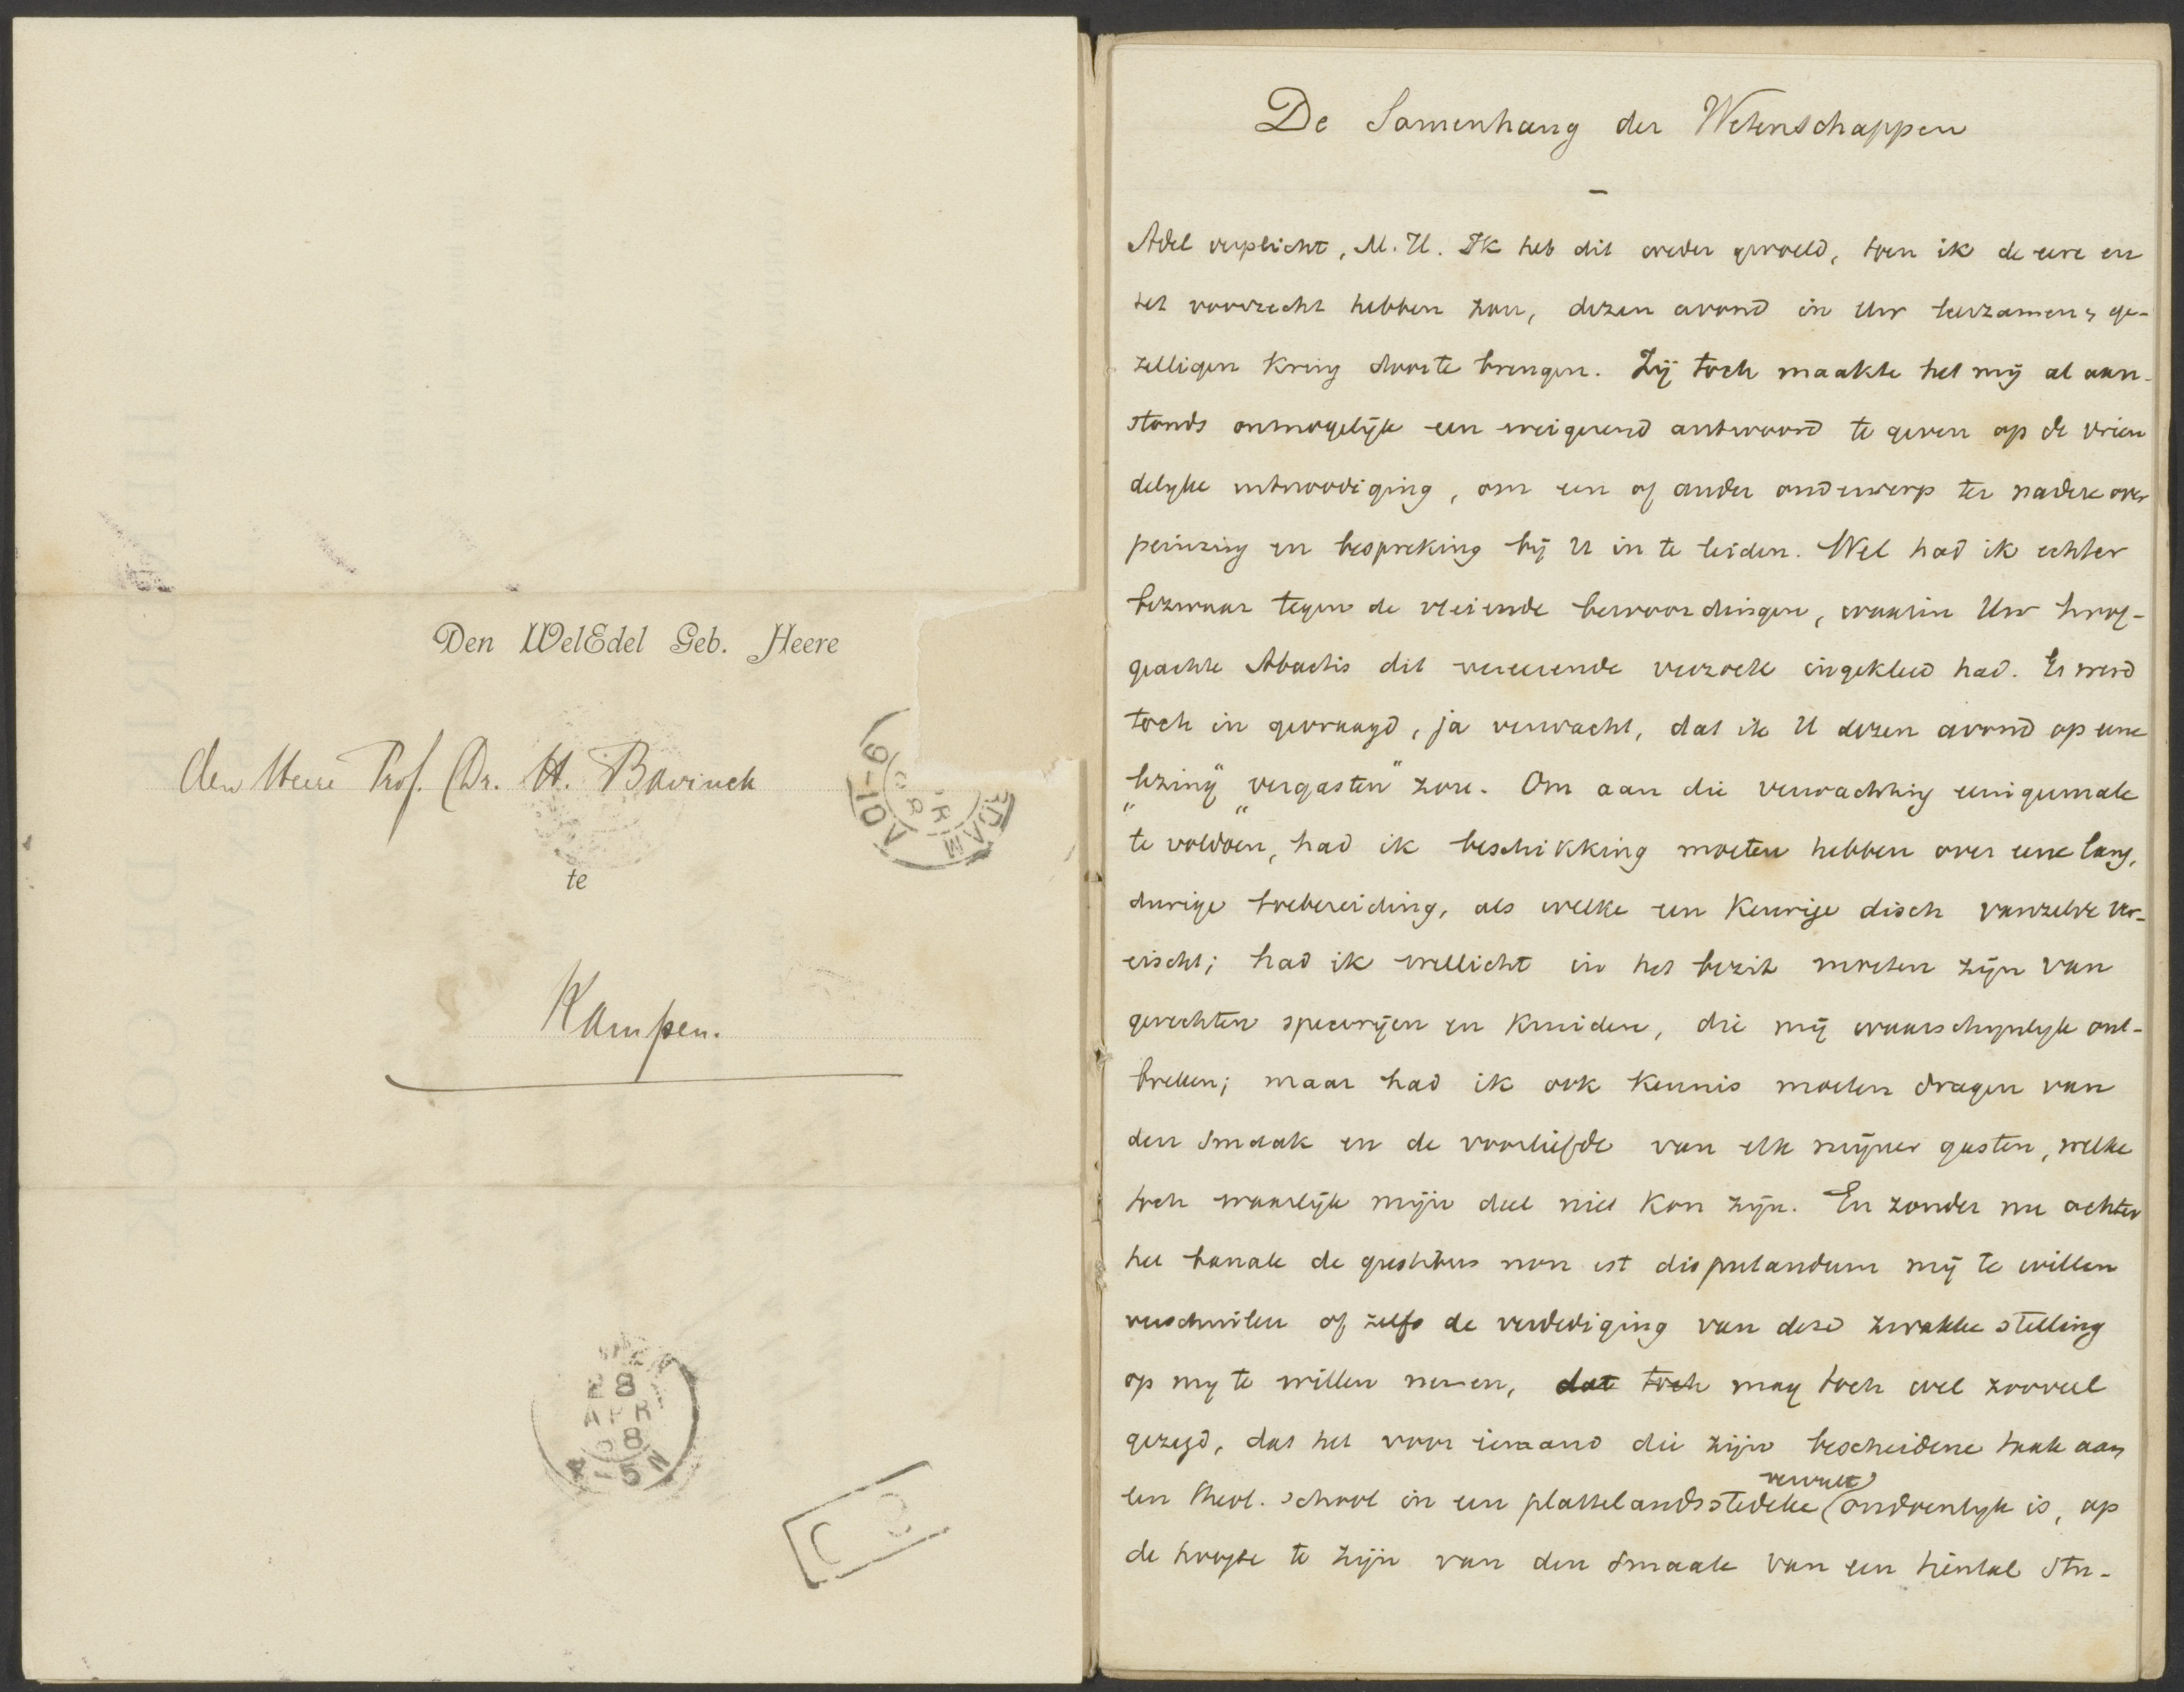 Den WelEdel Geb. Heere
den Heere Prof. Dr. H. Bavinck
te
Kampen.
9-10V
DAM
28
APR
98
4-5N
De Samenhang der Wetenschappen
Adel verplicht, M. H. Ik heb dit weder gevoeld, toen ik de eere en
het voorrecht hebben zou, dezen avond in Uw leerzamen, ge-
zelligen Kring door te brengen. Zij toch maakte het mij al aan-
stonds onmogelijk een weigerend antwoord te geven op de vrien
delijke uitnoodiging, om een of ander onderwerp ter nadere over
peinzing en bespreking bij U in te leiden. Wel had ik echter
bezwaar tegen de vleiende bewoordingen, waarin Uw hoog-
geachte Abactis dit vereerende verzoek ingekleed had. Er werd
toch in gevraagd, ja verwacht, dat ik U dezen avond op eene
"lezing" "vergasten" zou. Om aan die verwachting eenigermate
te voldoen, had ik beschikking moeten hebben over eene lang,
durige toebereiding, als welke een Keurige disch vanzelve ver-
eischt; had ik wellicht in het bezit moeten zijn van
gerechten specerijen en Kruiden, die mij waarschynlyk ont-
breken; maar had ik ook Kennis moeten dragen van
den smaak en de voorliefde van elk mijner gasten, welke
toch waarlijk mijn deel niet Kon zijn. En zonder nu achter
het banale de gustibus non est disputandum mij te willen
verschuilen of zelfs de verdediging van deze zwakke stelling
op my te willen nemen, dat toch mag toch wel zooveel
gezegd, dat het voor iemand die zijn bescheidene taak aan
een theol. school in een plattelandsstedeke vervult ondoenlyk is, op
de hoogte te zijn van den smaak van een tiental stu-